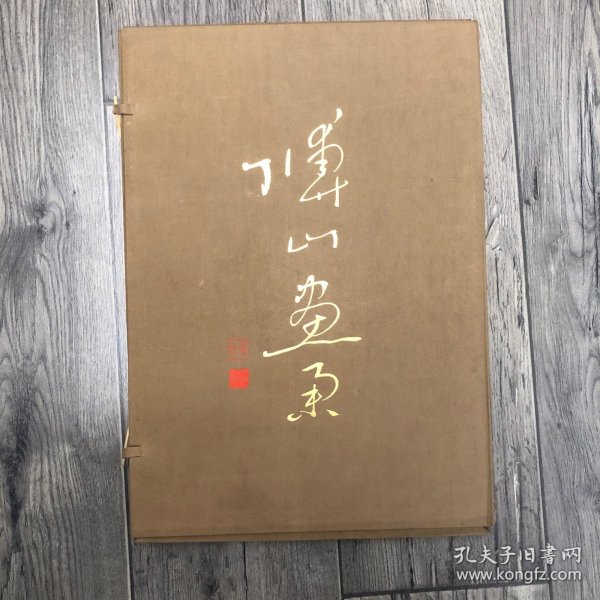 山画集
孔夫子旧書网
www.kongfz.com